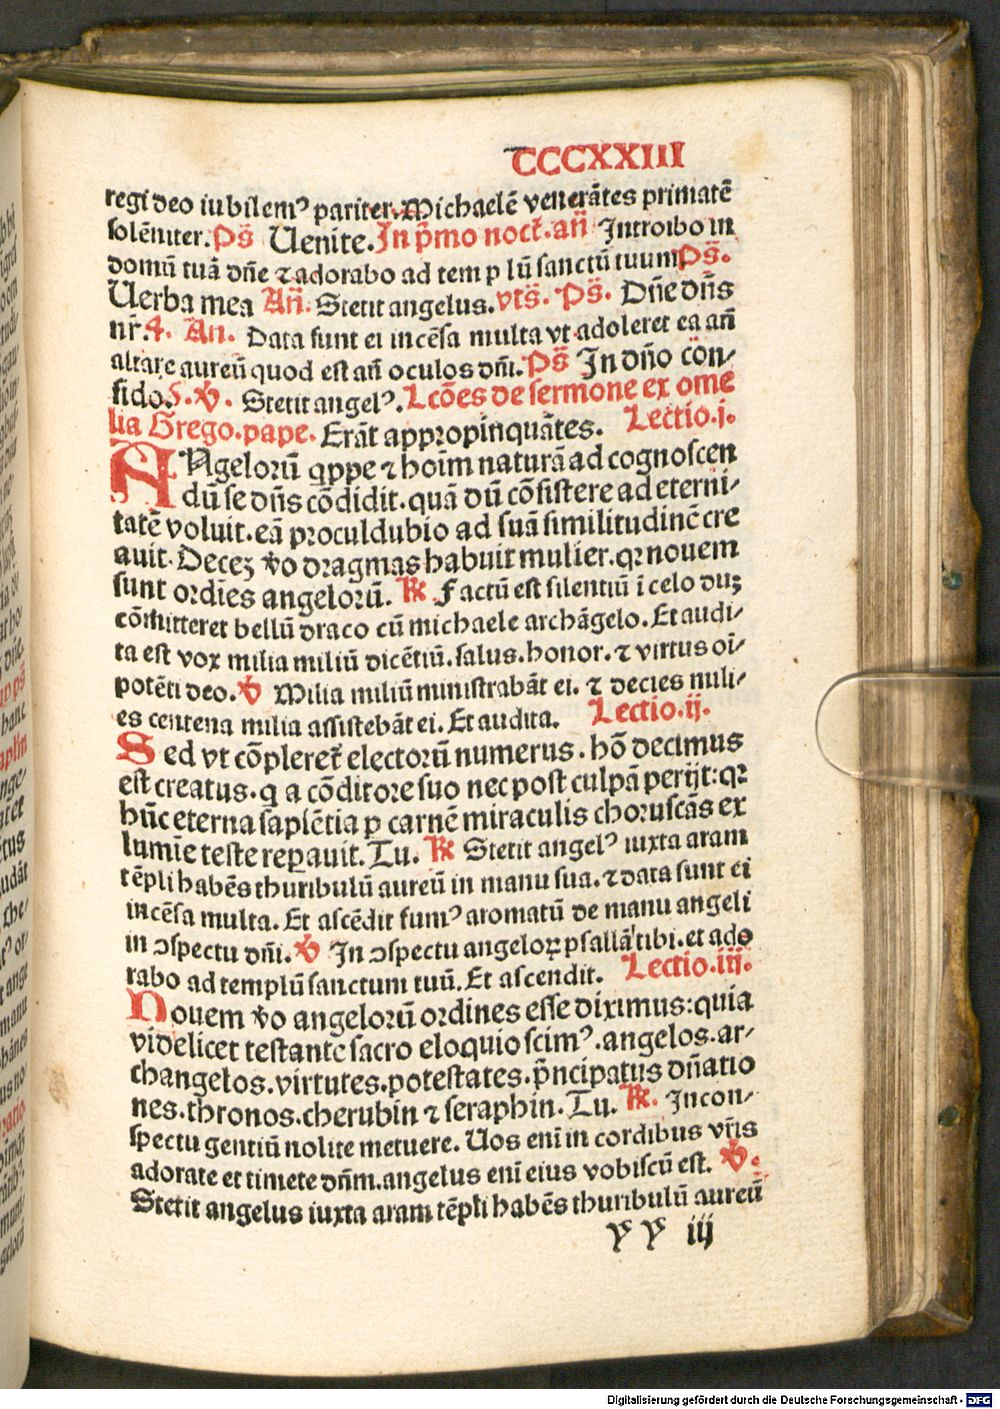 CCCXXIII
regi deo iubilemꝰ pariter. Michaelē venerātes primatē
solēniter. Ps̄ Uenite. In p̄mo noct̄. an̄ Introibo in
domū tuā dn̄e ⁊ adorabo ad tem p lū sanctū tuum Ps̄.
Uerba mea An̄. Stetit angelus. vts̄. Ps̄. Dn̄e dn̄s
nr̄. 4. An. Data sunt ei incēsa multa vt adoleret ea an̄
altare aureū quod est an̄ oculos dn̄i. Ps̄ In dn̄o con-
fido. S. ꝟ. Stetit angelꝰ. Lcōes de sermone ex ome
lia Grego. pape. Erāt appropinquātes. Lectio. j.
ANgelorū qppe ⁊ hoīm naturā ad cognoscen
dū se dn̄s cōdidit. quā dū cōsistere ad eterni-
tatē voluit. eā proculdubio ad suā similitudinē cre
auit. Decez ꝟo dragmas habuit mulier. qr nouem
sunt ordies angelorū. ℟. Factū est silentiū ī celo duz
cōmitteret bellū draco cū michaele archāgelo. Et audi-
ta est vox milia miliū dicētiū. salus. honor. ⁊ virtus oī-
potēti deo. ꝟ Milia miliū ministrabāt ei. ⁊ decies mili-
es centena milia assistebāt ei. Et audita. Lectio. ij.
Sed vt cōpleret̄ electorū numerus. hō decimus
est creatus. q a cōditore suo nec post culpā perijt: qr
hūc eterna sapiētia p carnē miraculis choruscās ex
lumīe teste reꝑauit. Tu. ℟ Stetit angelꝰ iuxta aram
tēpli habēs thuribulū aureū in manu sua. ⁊ data sunt ei
incēsa multa. Et ascēdit fumꝰ aromatū de manu angeli
in ↄspectu dn̄i. ꝟ In ↄspectu angeloꝝ psallā tibi. et ado
rabo ad templū sanctum tuū. Et ascendit. Lectio. iij.
Nouem ꝟo angelorū ordines esse diximus: quia
videlicet testante sacro eloquio scimꝰ. angelos. ar-
changelos. virtutes. potestates. p̄ncipatus dn̄atio
nes. thronos. cherubin ⁊ seraphin. Tu. ℟. Incon-
spectu gentiū nolite metuere. Uos enī in cordibus vr̄is
adorate et timete dn̄m. angelus enī eius vobiscū est. ꝟ.
Stetit angelus iuxta aram tēpli habēs thuribulū aureū
y y iij
Digitalisierung gefördert durch die Deutsche Forschungsgemeinschaft - DFG